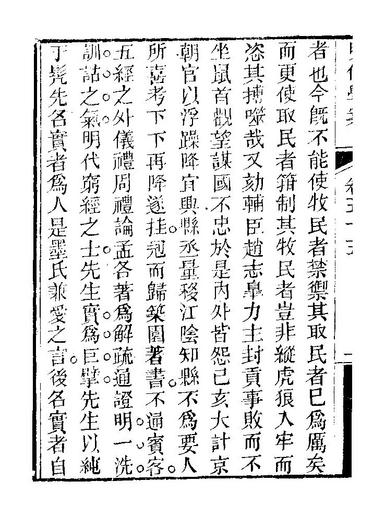 者也今旣不能使牧民者禁禦其取民者已爲厲矣
而更使取民者箝制其牧民者豈非縱虎狼入牢而
恣其搏噬哉又劾輔臣趙志臯力主封貢事敗而不
坐鼠首觀望謀國不忠於是內外皆怨己亥大計京
朝官以浮躁降宜興縣丞量移江陰知縣不爲要人
所喜考下下再降遂挂冠而歸築園著書不通賓客
五經之外儀禮周禮論孟各著爲解疏通證明一洗
訓詁之氣明代窮經之士先生實爲巨擘先生以純
于髠先名實者爲人是墨氏兼愛之言後名實者自